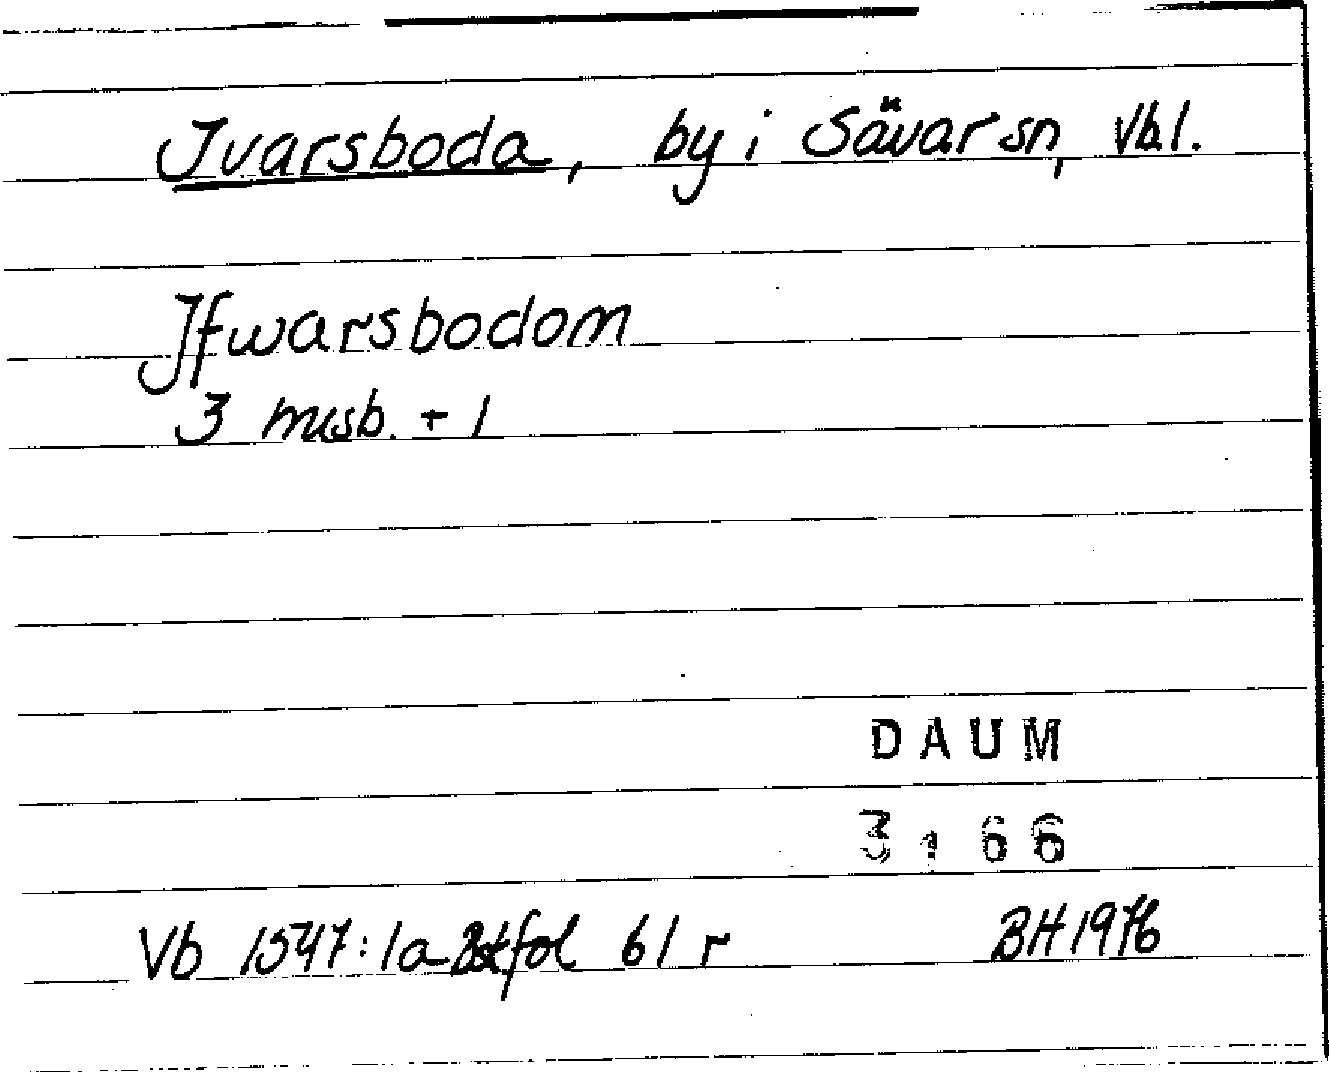 Ivarsboda, by i Sävar sn, Vbl.
Jfwarsbodom
3 misb. + 1
DAUM
3:66
Vb 1547:1a fol 61 r
BH 1976